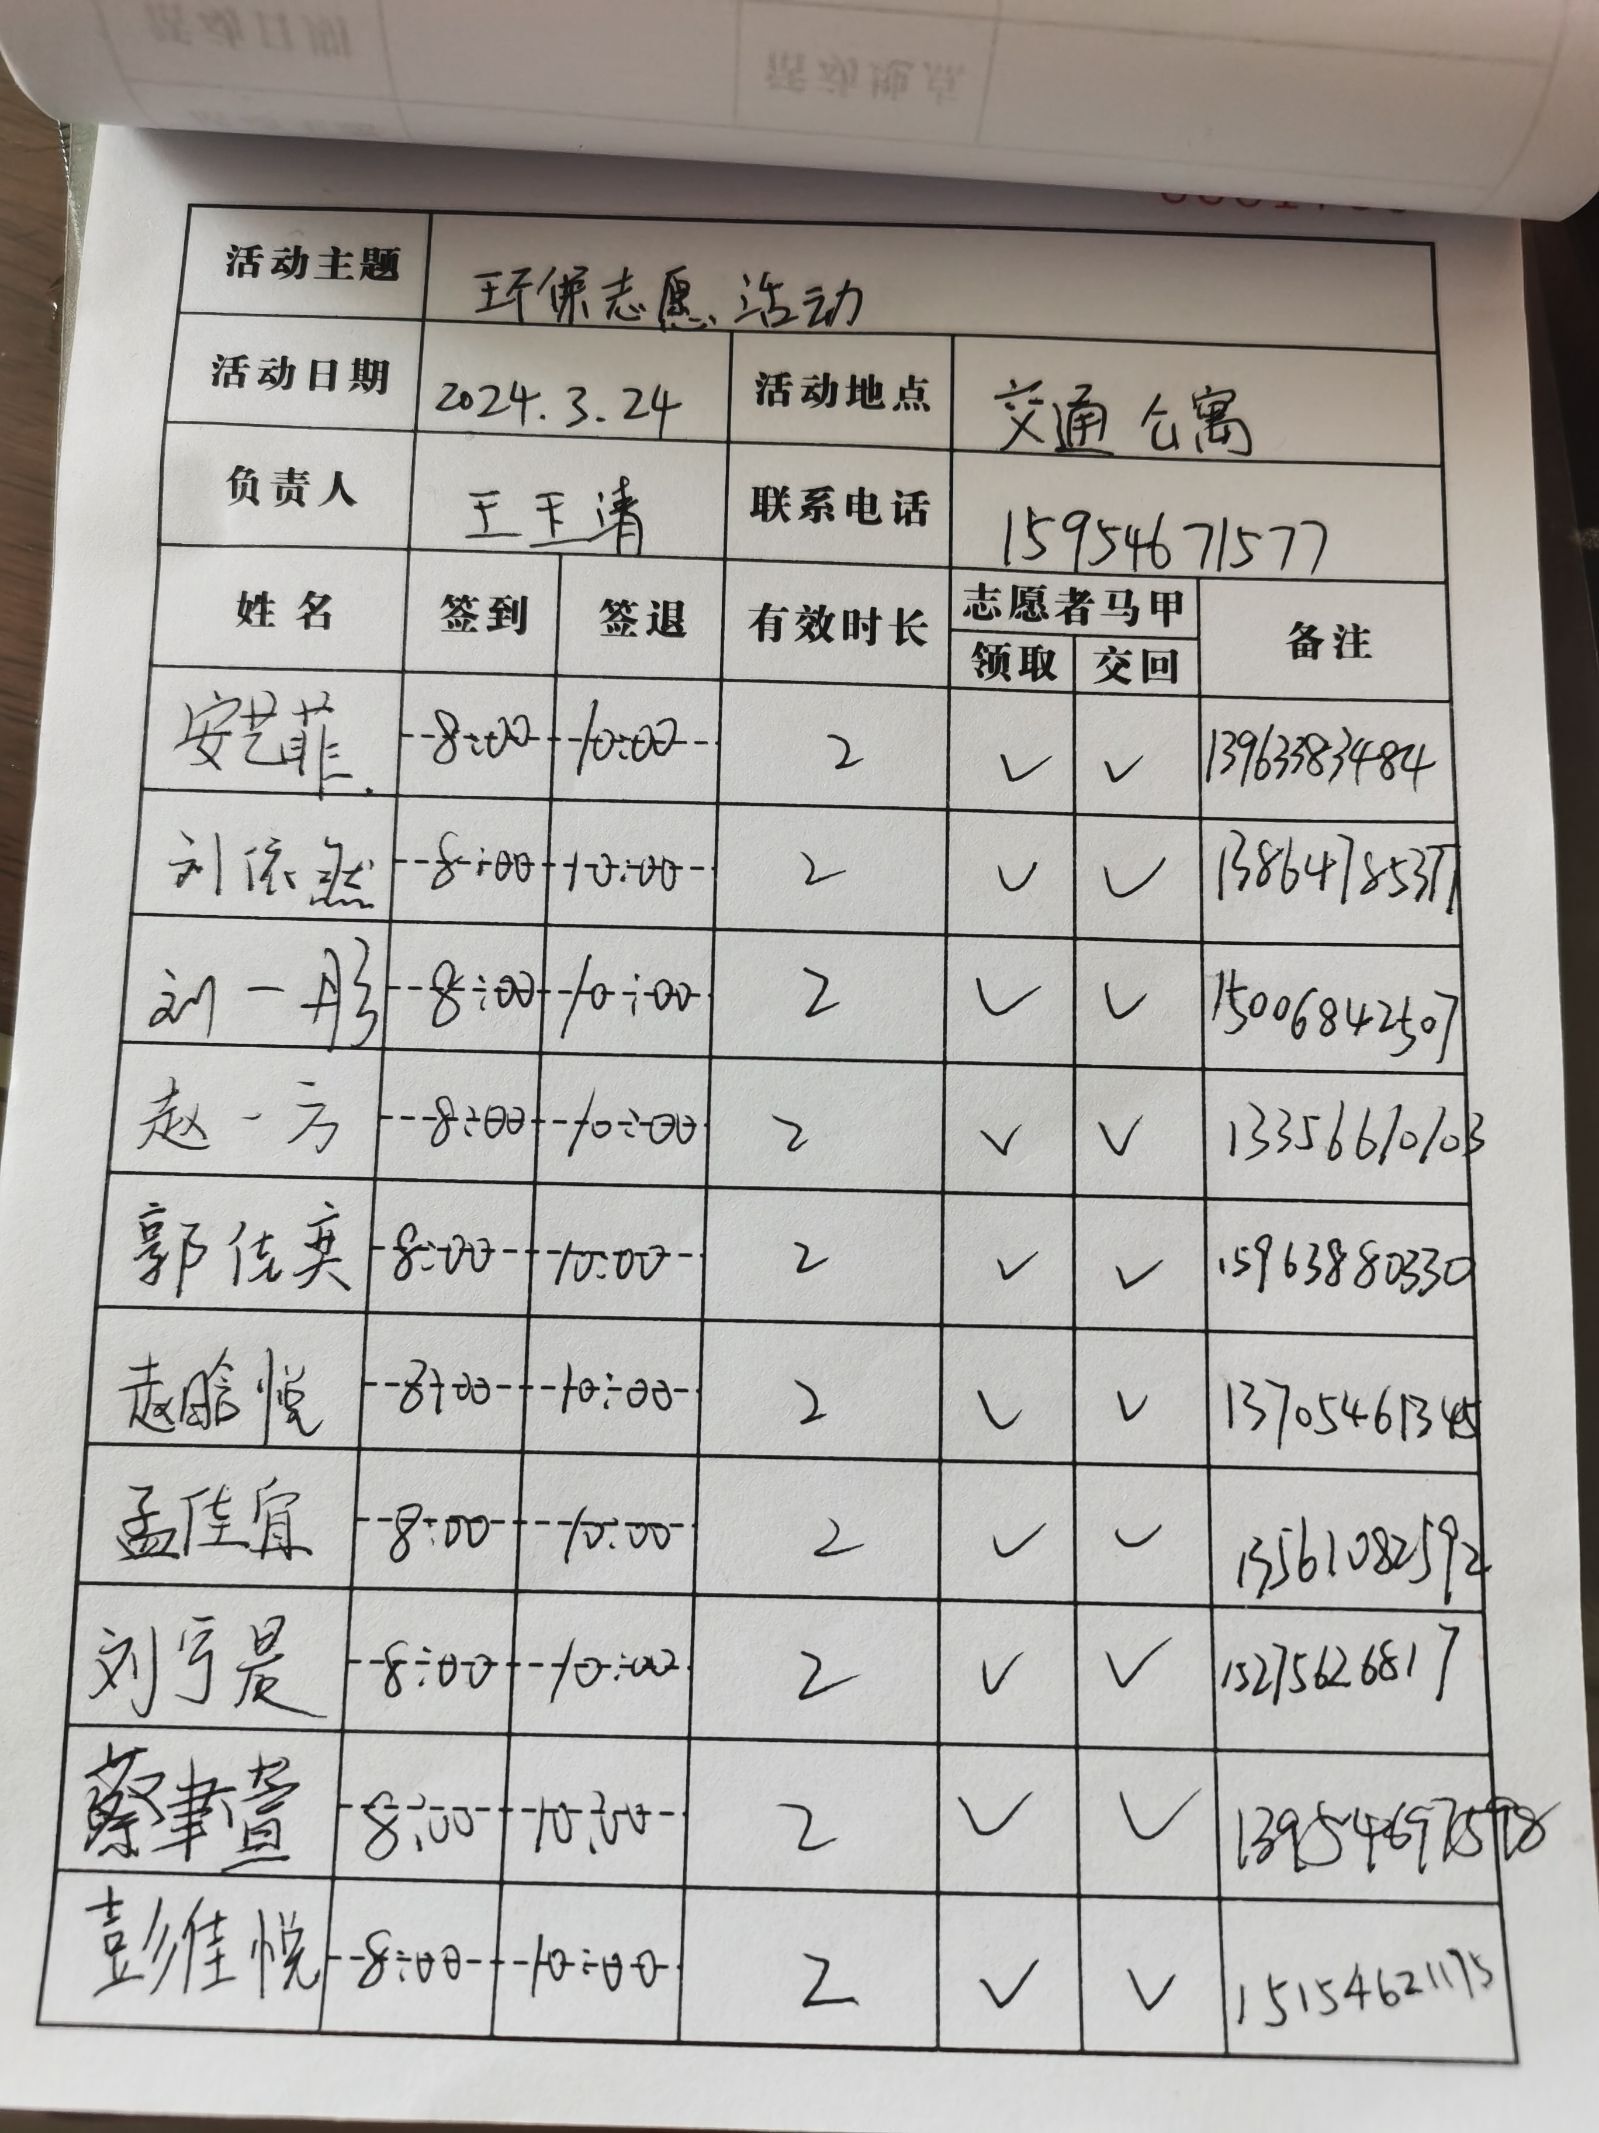 活动主题 环保志愿活动
活动日期 2024.3.24 活动地点 交通公寓
负责人 王玉清 联系电话 15954671577
姓名 签到 签退 有效时长 志愿者马甲 备注
领取 交回
安艺菲. 8:00 10:00 2 ✓ ✓ 13963383484
刘依然 8:00 10:00 2 ✓ ✓ 13864785377
刘一彤 8:00 10:00 2 ✓ ✓ 15006842507
赵一方 8:00 10:00 2 ✓ ✓ 13356610103
郭佳奕 8:00 10:00 2 ✓ ✓ 15963880330
赵晗悦 8:00 10:00 2 ✓ ✓ 13705461345
孟佳宜 8:00 10:00 2 ✓ ✓ 13561082592
刘亨晨 8:00 10:00 2 ✓ ✓ 15275626817
蔡聿萱 8:00 10:00 2 ✓ ✓
彭维悦 8:00 10:00 2 ✓ ✓ 15154621175